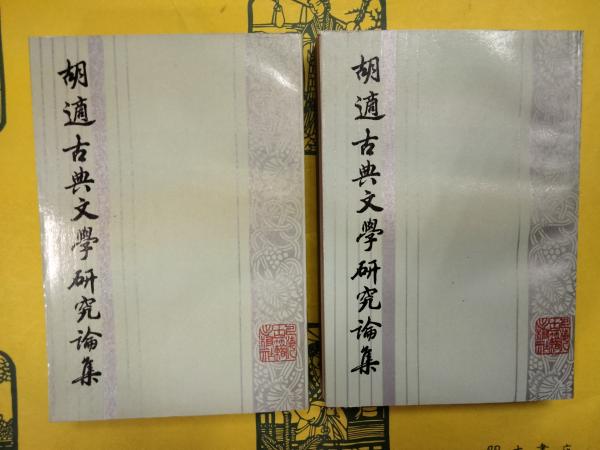 胡適古典文學研究論集
胡適古典文學研究論集